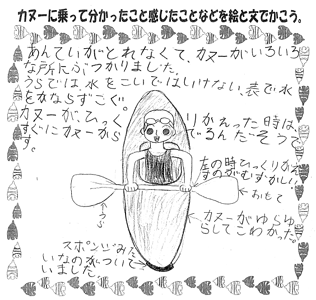 カヌーに乗って分かったこと感じたことなどを絵と文でかこう。
あんていがとれなくて、カヌーがいろいろ
な所にぶつかりました。
うらでは、水をこいではいけない、表で水
をかならずこぐ。
カヌーが、ひっくりかえった時は、
すぐにカヌーから
す。
その時ひっくりかえ
すのがむずかしい
おもて
うら
カヌーがゆらゆ
らしてこわかった。
スポンジみた
いなのがついて
いました。